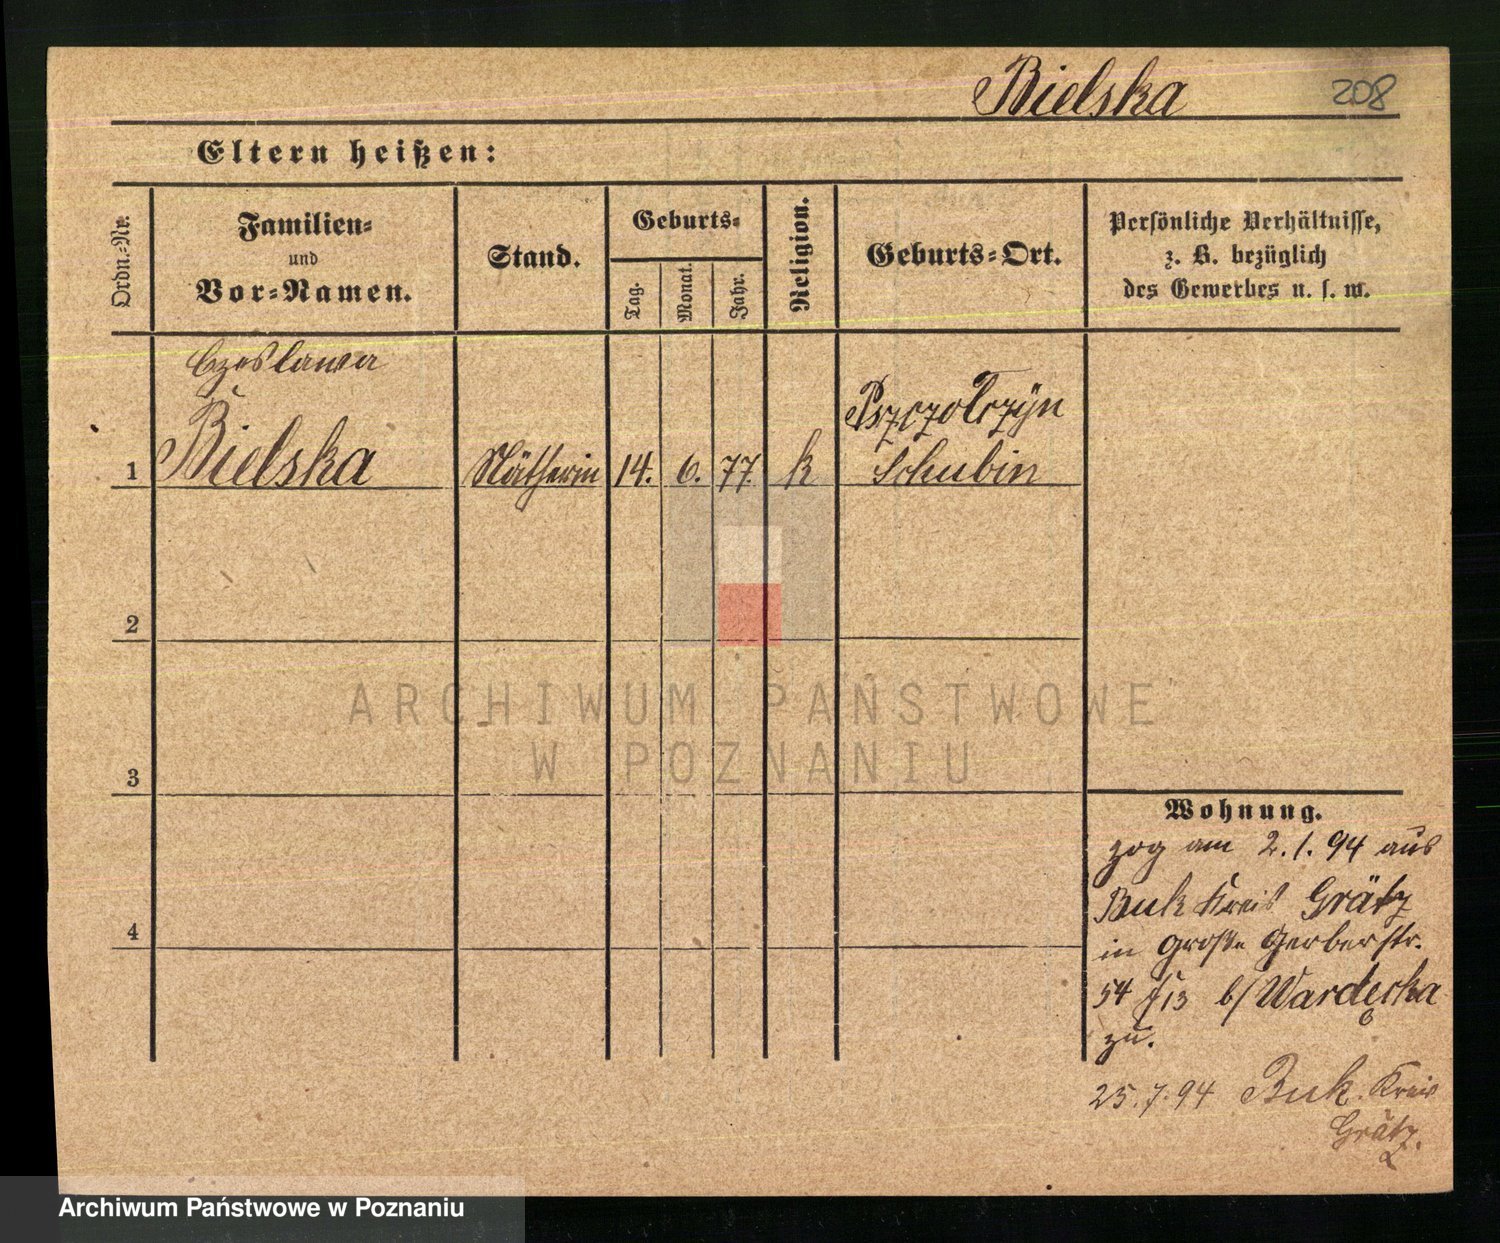 Bielska 208
Eltern heißen:
Ordn.-Nr.
Familien-
und
Vor-Namen.
Stand.
Geburts-
Tag.
Monat.
Jahr.
Religion.
Geburts-Ort.
Persönliche Verhältnisse,
z. B. bezüglich
des Gewerbes u. s. w.
Czeslawa
Pszczolczyn
1 Bielska Nätherin 14. 6. 77. k Schubin
2
3
4
Wohnung.
zog am 2.1.94 aus
Buk Kreis Grätz
in Große Gerberstr.
54 b/ Wardęska
zu.
25.7.94 Buk. Kreis
Grätz.
ARCHIWUM PAŃSTWOWE
W POZNANIU
Archiwum Państwowe w Poznaniu